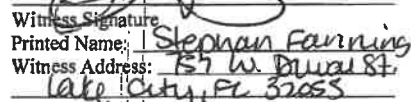 Witness Signature
Printed Name: Stephan Fanning
Witness Address: 757 W. Duval St.
Lake City, FL 32055